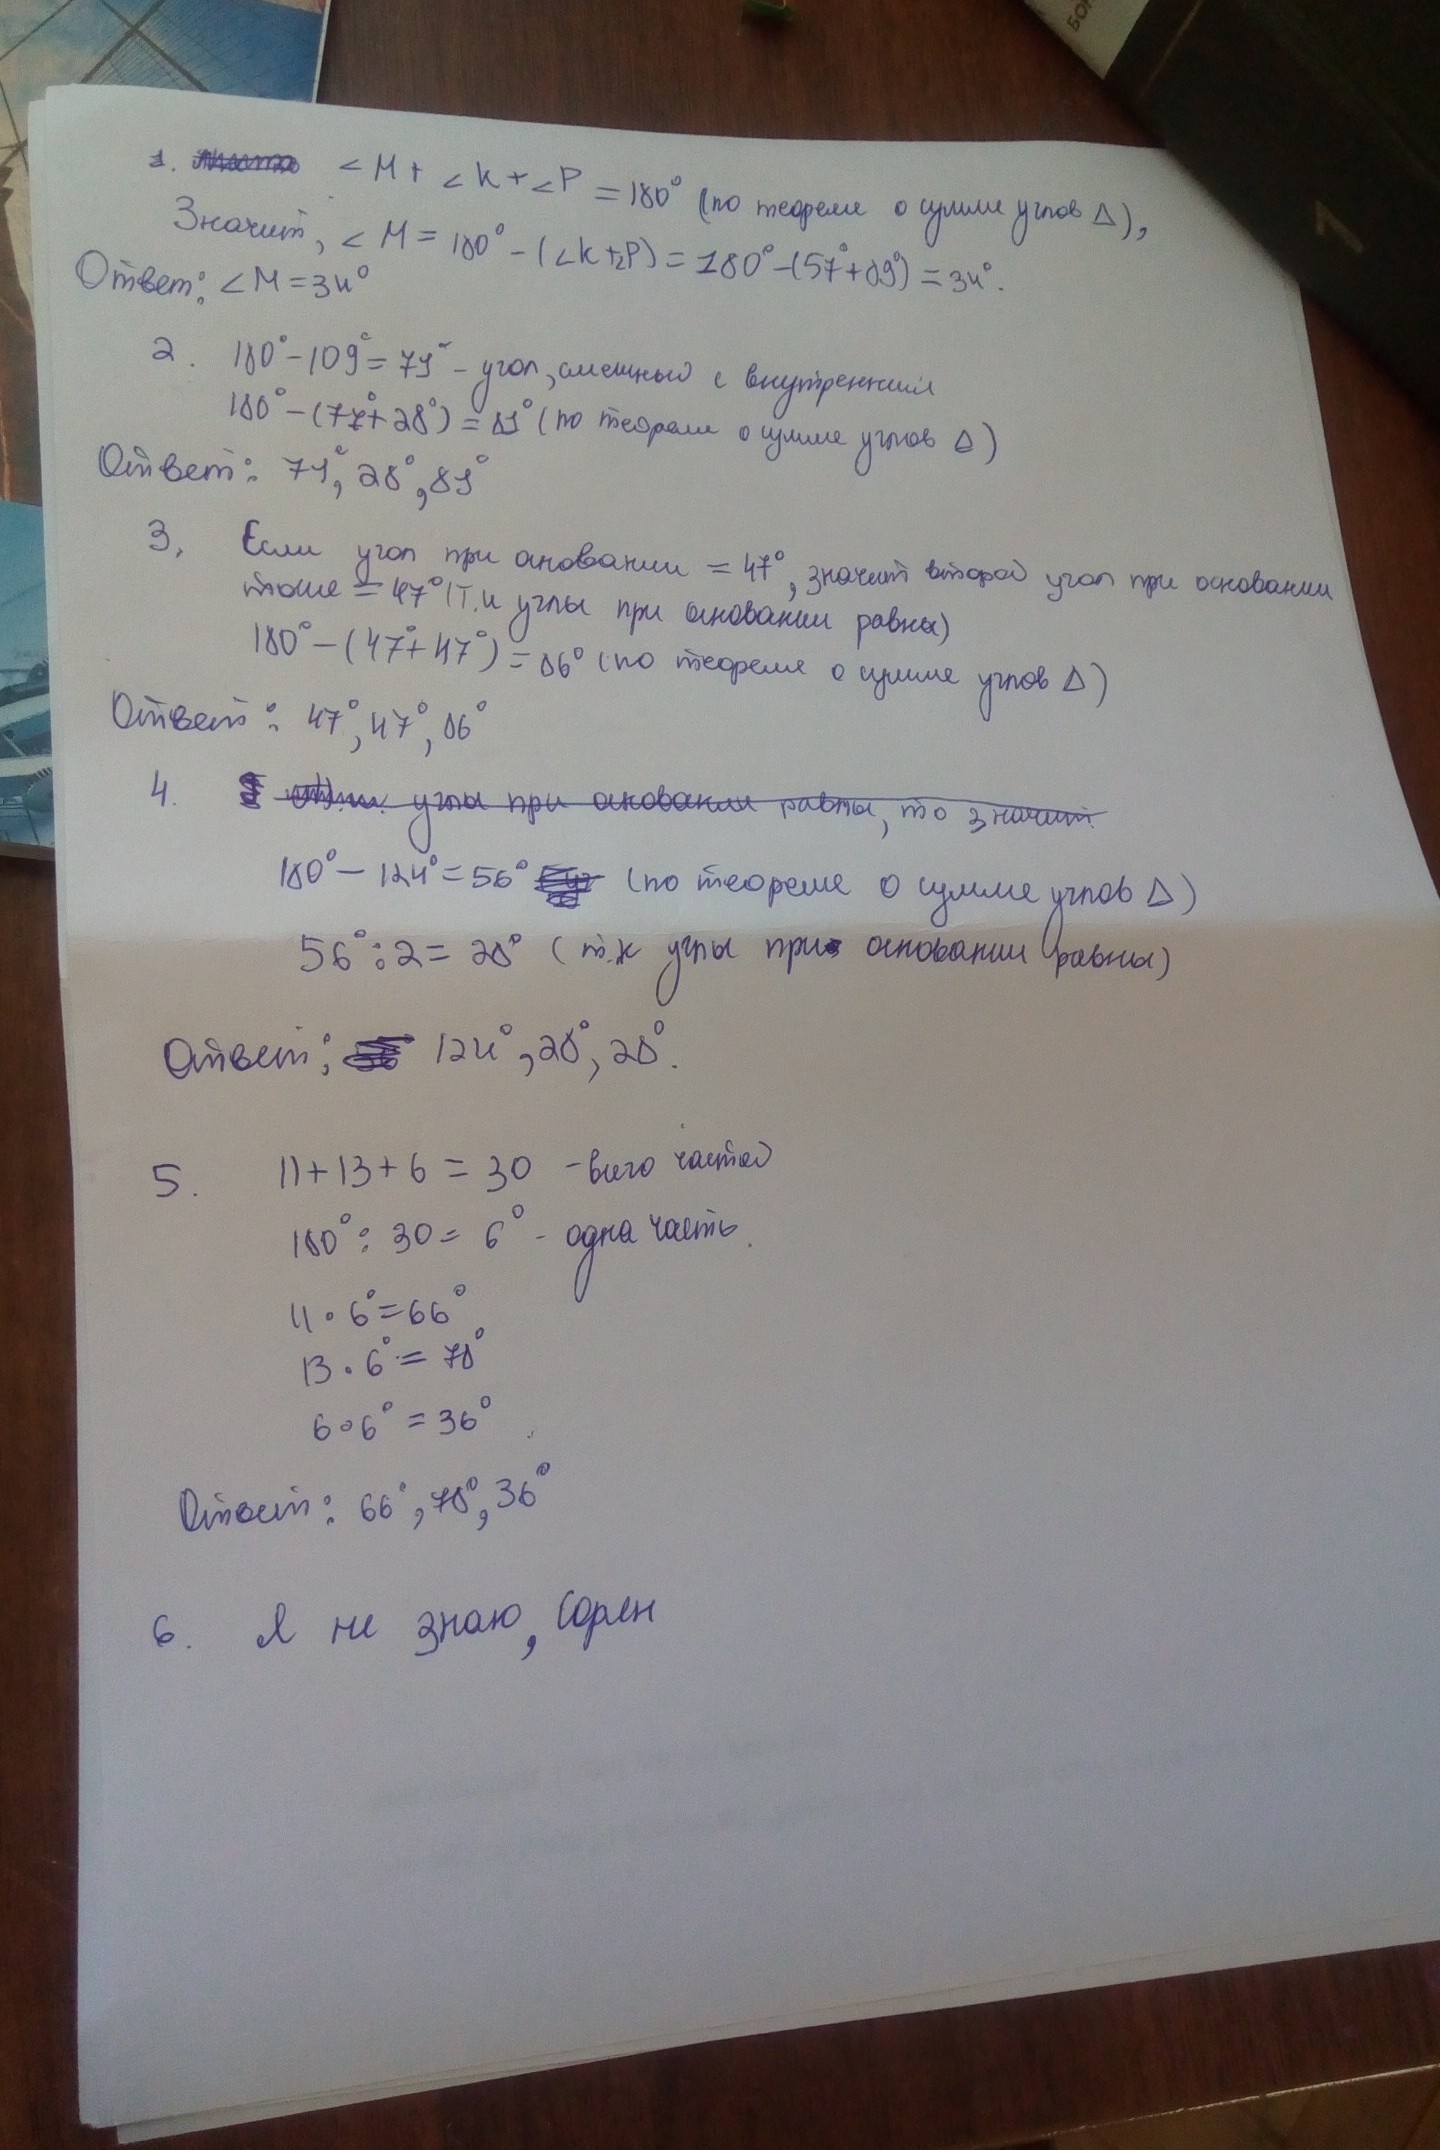 1. ∠M + ∠K + ∠P = 180° (по теореме о сумме углов Δ),
Значит, ∠M = 180° - (∠K+∠P) = 180° - (57°+89°) = 34°.
Ответ: ∠M = 34°
2. 180° - 109° = 71° - угол, смежный с внутренним
180° - (77°+28°) = 81° (по теореме о сумме углов Δ)
Ответ: 71°, 28°, 81°
3. Если угол при основании = 47°, значит второй угол при основании
тоже = 47° (т.к углы при основании равны)
180° - (47°+47°) = 86° (по теореме о сумме углов Δ)
Ответ: 47°, 47°, 86°
4. углы при основании равны, то значит
180° - 124° = 56° (по теореме о сумме углов Δ)
56° : 2 = 28° (т.к углы при основании равны)
Ответ: 124°, 28°, 28°.
5. 11 + 13 + 6 = 30 - всего частей
180° : 30 = 6° - одна часть.
11 · 6° = 66°
13 · 6° = 78°
6 · 6° = 36°
Ответ: 66°, 78°, 36°
6. Я не знаю, сорян